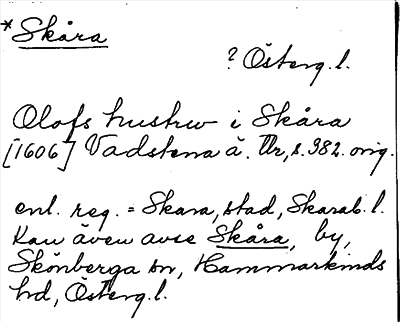 * Skåra
? Österg.l.
Olofs hustru i Skåra
[1606] Vadstena ä. Ur, s. 382. orig.
enl. reg. = Skara, stad, Skarab.l.
Kan även avse Skåra, by,
Skönberga sn, Hammarkinds
hd, Österg.l.